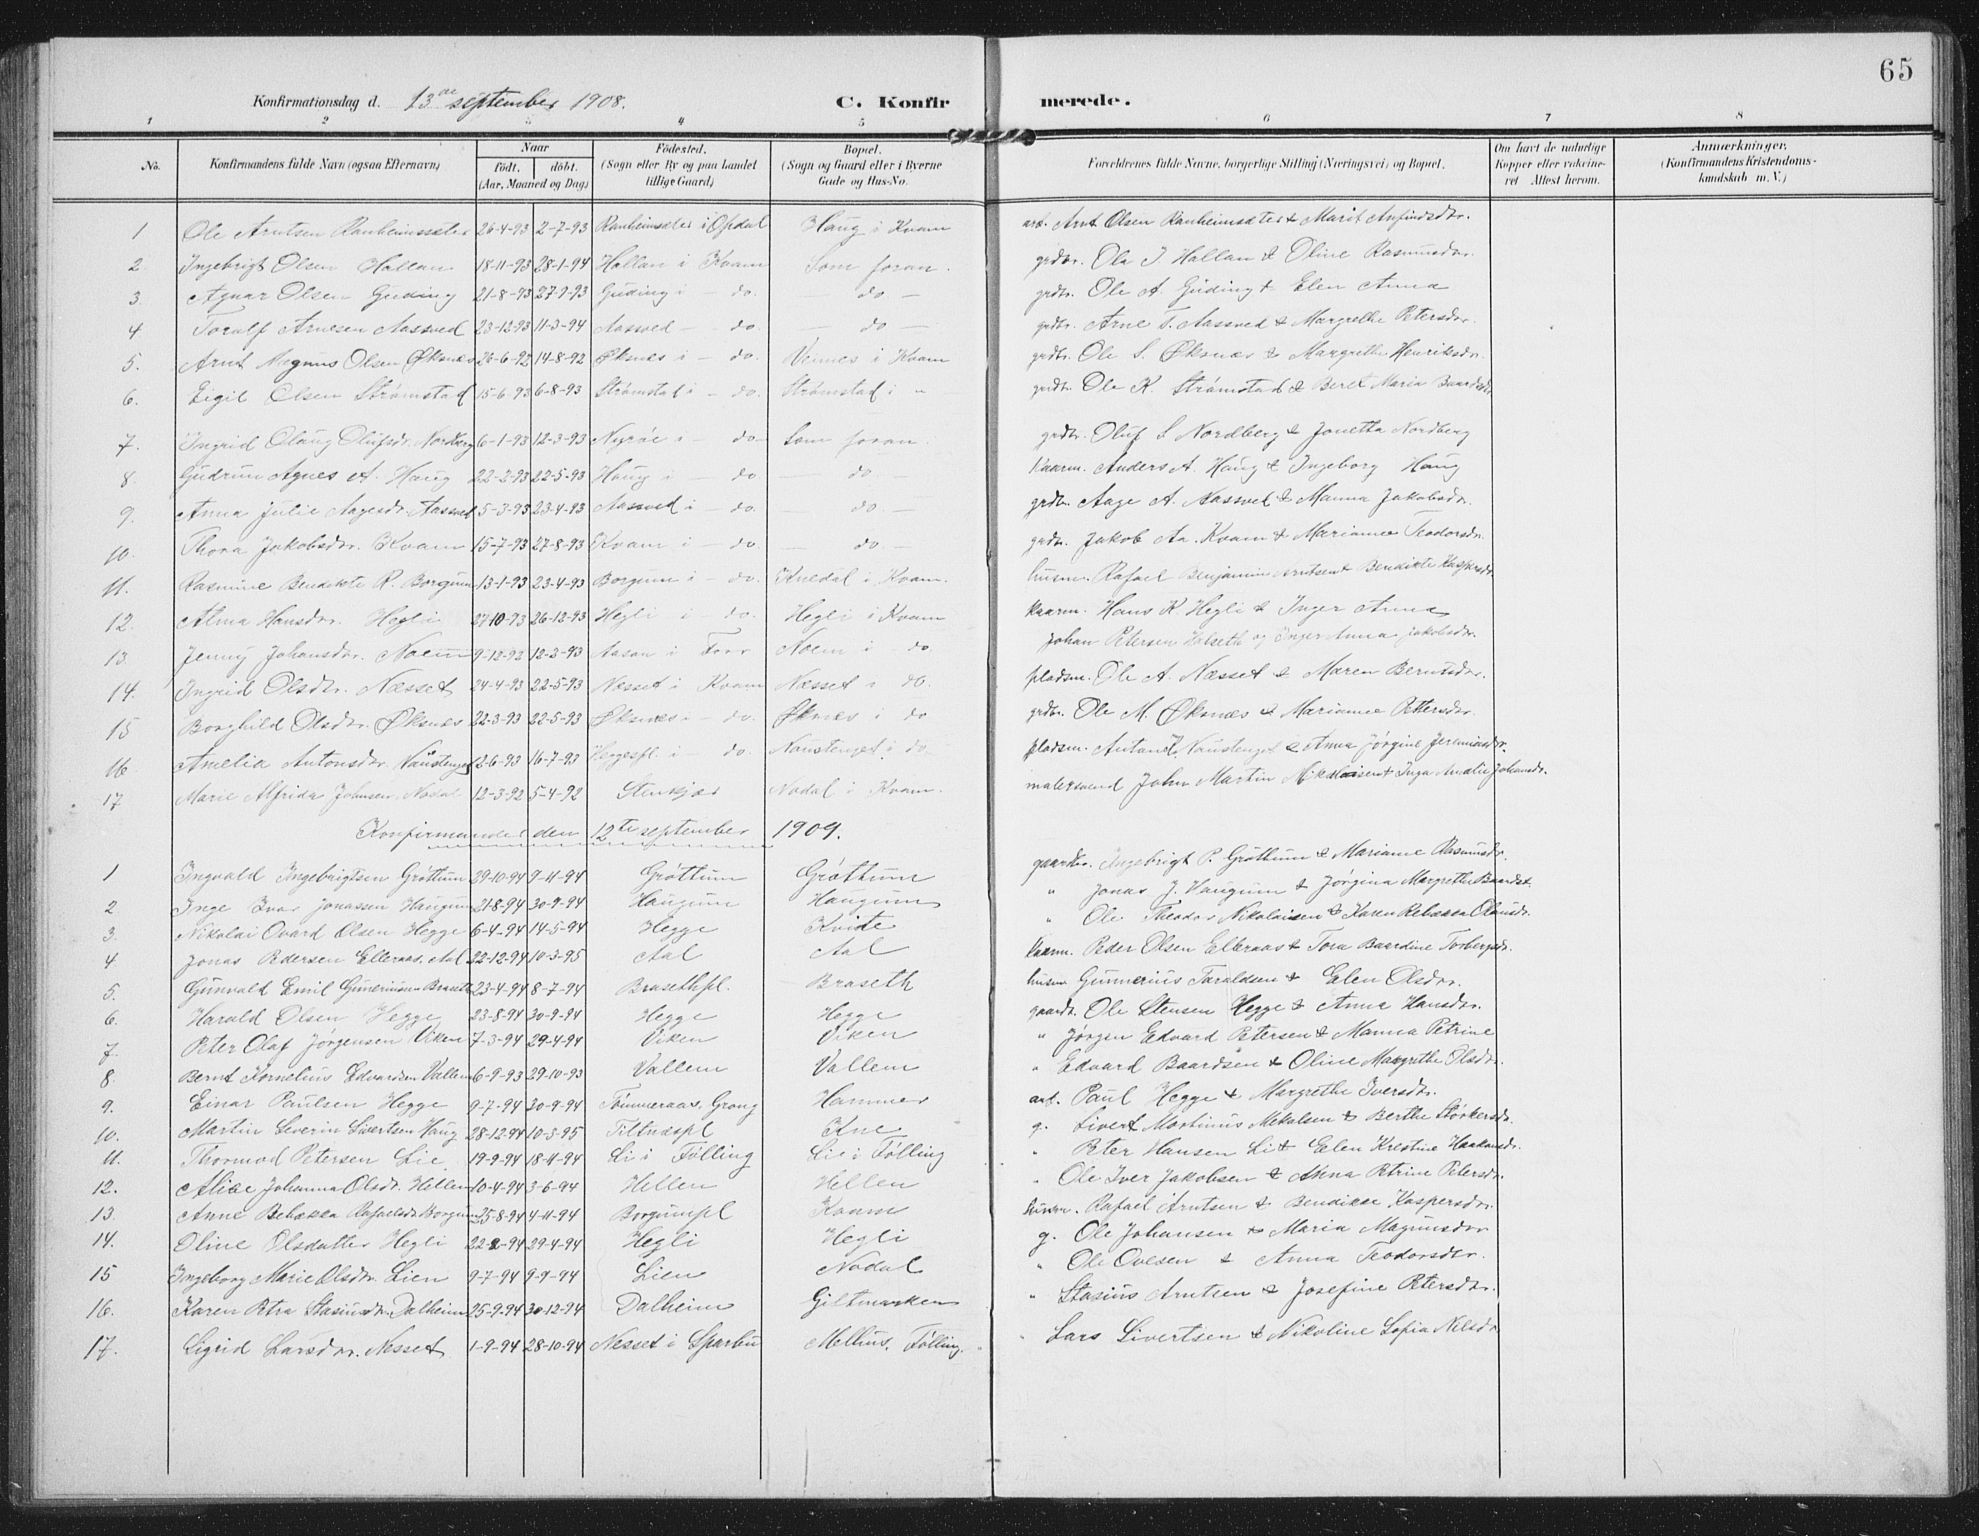 65
Konfirmationsdag d. 13de september 1908. C. Konfirmerede.
1 2 3 4 5 6 7 8
No. Konfirmandens fulde Navn (ogsaa Efternavn) Naar Født. døbt. (Aar, Maaned og Dag) Fødested. (Sogn eller By og paa Landet tillige Gaard) Bopæl. (Sogn og Gaard eller i Byerne Gade og Hus-No. Forældrenes fulde Navne, borgerlige Stilling (Næringsvei) og Bopæl. Om havt de naturlige Kopper eller vakcineret Attest herom. Anmærkninger. (Konfirmandens Kristendomskundskab m. V.)
1 Ole Arntsen Ranheimsæter 26-4-93 2-7-93 Ranheimsæter i Opdal Haug i Kvam arb. Arnt Olsen Ranheimsæter & Marit Anfindsdr.
2. Ingebrigt Olsen Hallan 18-11-93 28-1-94 Hallan i Kvam Som foran. grdbr. Ole J. Hallan & Oline Rasmusdr.
3. Agnar Olsen Guding 21-8-93 27-9-93 Guding i - do. do - grdbr. Ole A. Guding & Elen Anna
4. Toralf Arnesen Aassved 23-12-93 11-3-94 Aasved - do. - do - grdbr. Arne T. Aassved & Margrethe Petersdr.
5. Arnt Magnus Olsen Øksnæs 26-6-92 14-8-92 Øksnes i - do. Vennes i Kvam grdbr. Ole S. Øksnæs & Margrethe Henriksdr.
6. Eigil Olsen Strømstad 15-6-93 6-8-93 Strømstad i - do. Strømstad i " grdbr. Ole K. Strømstad & Beret Maria Baardsdr.
7. Ingrid Olaug Olufsdr. Nordberg 6-1-93 12-3-93 Nyrøe i - do - Som foran. grdbr. Oluf S. Nordberg & Jonetta Nordberg
8 Gudrun Agnes A. Haug 22-2-93 22-5-93 Haug i - do - do - Kaarm. Anders A. Haug & Ingeborg Haug
9. Anna Julie Aagesdr. Aassved 5-3-93 23-4-93 Aassved i - do. do. - grdbr. Aage A. Aassved & Manna Jakobsdr.
10. Thora Jakobsdr. Kvam 15-7-93 27-8-93 Kvam i - do - do. - grdbr. Jakob Aa. Kvam & Marianne Teodorsdr.
11. Rasmine Bendikte R. Borgum 13-1-93 23-4-93 Borgum i - do. Knedal i Kvam. husm. Rafael Benjamin Arntsen & Bendikte Kaspersdr.
12. Alma Hansdr. Hegli 27-10-93 26-12-93 Hegli i do. Hegli i Kvam Kaarm. Hans K. Hegli & Inger Anna
13. Jenny Johansdr. Noem 9-12-92 12-3-93 Aasan i Foss Noem i do. Johan Petersen Holseth og Inger Anna Jakobsdr.
14. Ingrid Olsdtr. Næsset 24-4-93 22-5-93 Næsset i Kvam Næsset i do. pladsm. Ole A. Næsset & Maren Berntsdr.
15 Borghild Olsdtr. Øksnæs 22-3-93 22-5-93 Øksnæs i - do. Øksnæs i do grdbr. Ole M. Øksnæs & Marianne Pettersdr.
16 Amelia Antonsdr. Naustenget 2-6-93 16-7-93 Heggespl. i - do. Naustenget i do pladsm. Antand Naustenget & Anna Jørgine Jeremiasdr.
17 Marie Alfrida Johnsen Nodal 12-3-92 5-4-92 Stenkjær Nodal i Kvam. malersvend John Martin Nikolaisen & Inga Amalie Johansdr.
Konfirmander den 12te september 1909.
1 Ingvald Ingebrigtsen Grøttum 29-10-94 9-11-94 Grøttum Grøttum gaardbr. Ingebrigt P. Grøttum & Marianne Rasmusdr.
2 Inge Ivar Jonassen Haugum 21-8-94 30-9-94 Haugum Haugum " Jonas J. Haugum & Jørgina Margrethe Baardsd.
3. Nikolai Ovard Olsen Hegge 6-4-94 14-5-94 Hegge Kvide " Ole Theodor Nikolaisen & Karen Rebækka Olausdr.
4 Jonas Pedersen Ellernaas. Aal 22-12-94 10-3-95 Aal Aal Kaarm. Peder Olsen Ellernaas & Tora Baardine Torbergsdr.
5. Gunvald Emil Gunnerinsen Braseth 23-4-94 8-7-94 Brasethpl. Braseth husm Gunnerius Taraldsen & Elen Olsdr.
6. Harald Olsen Hegge 23-8-94 30-9-94 Hegge Hegge gaardb. Ole Stensen Hegge & Anna Hansdr.
7. Peter Olaf Jørgensen Viken 7-3-94 29-4-94 Viken Viken " Jørgen Edvard Petersen & Manna Petrine
8. Bernt Kornelius Edvardsen Vallem 6-9-93 29-10-93 Vallem Vallem " Edvard Baardsen & Oline Margrethe Olsdr.
9. Einar Paulsen Hegge 9-7-94 30-9-94 Tømmeraas, Grong Hammer arb. Paul Hegge & Margrethe Iversdr.
10. Martin Severin Sivertsen Haug 28-12-94 10-3-95 Tiltnespl Kne g. Sivert Martinus Mikalsen & Berthe Størkersdr.
11. Thormod Petersen Lie 19-9-94 18-11-94 Li i Følling Lie i Følling " Peter Hansen Li & Elen Kristine Haakonsdr.
12. Alice Johanna Olsdr. Hellem 10-4-94 3-6-94 Hellen Hellen " Ole Iver Jakobsen & Anna Petrine Petersdr.
13. Anne Rebækka Rafaelsdr. Borgum 25-8-94 4-11-94 Borgumpl Kvam husm. Rafael Arntsen & Bendikse Kaspersdr.
14. Oline Olsdatter Hegli 22-2-94 29-4-94 Hegli Hegli g. Ole Johansen & Maria Magnusdr
15 Ingeborg Marie Olsdr. Lien 9-7-94 9-9-94 Lien Nodal " Ole Ovesen & Anna Teodorsdr.
16. Karen Petra Stasiusdr. Dalheim 25-9-94 30-12-94 Dalheim Giltmarken " Stasius Arntsen & Josefine Petersdr.
17. Sigrid Larsdr. Nesset 1-9-94 28-10-94 Nesset i Sparbu Melhus, Følling. " Lars Sivertsen & Nikoline Sofia Nilsdr